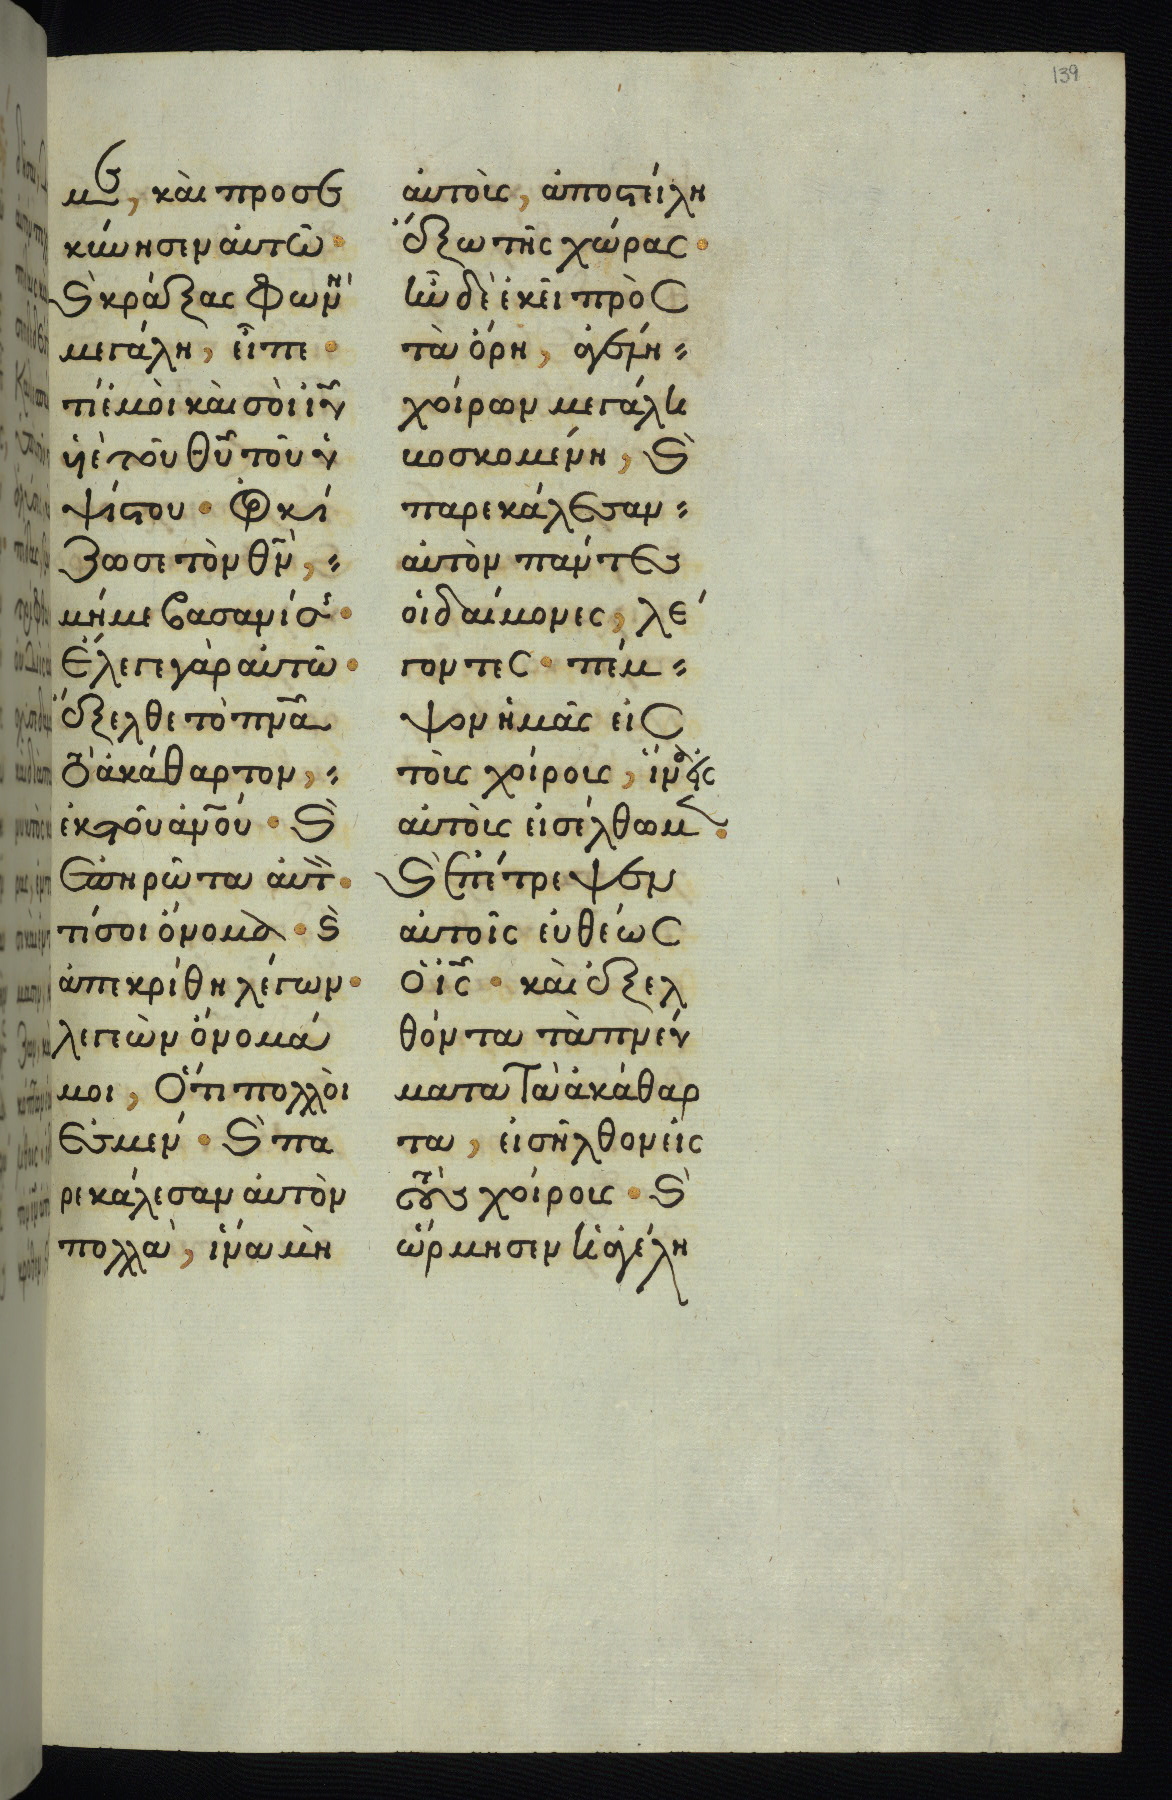 139
με, καὶ προσε
κύνησεν αὐτῶ·
Ϛ κράξας φωνῆ
μεγάλη, εἶπε·
τί ἐμοὶ καὶ σοὶ ἰῦ
ὑὲ τοῦ θῦ τοῦ ὑ
ψίστου· Ὁρκί
ζω σε τὸν θν,
μή με βασανίσ·
Ἔλεγε γὰρ αὐτῶ·
ἔξελθε τὸ πνα
τὸ ἀκάθαρτον,
ἐκ τοῦ ανου· Ϛ
ἐπηρῶτα αὐτ·
τί σοι ὄνομα· Ϛ
ἀπεκρίθη λέγων·
λεγεὼν ὄνομά
μοι, Ὅτι πολλοὶ
ἐσμεν· Ϛ πα
ρεκάλεσαν αὐτὸν
πολλὰ, ἵνα μὴ
αὐτοὺς, ἀποστείλη
ἔξω τῆς χώρας·
ἦν δὲ ἐκεῖ πρὸς
τὰ ὄρη, ἀγέλη
χοίρων μεγάλη
βοσκομένη, Ϛ
παρεκάλεσαν
αὐτὸν πάντες
οἱ δαίμονες, λέ
γοντες· πέμ
ψον ἡμᾶς εἰς
τοὺς χοίρους, ἵνα εἰς
αὐτοὺς εἰσέλθωμ·
Ϛ ἐπέτρεψεν
αὐτοῖς εὐθέως
ὁ ις· καὶ ἐξελ
θόντα τὰ πνεύ
ματα τὰ ἀκάθαρ
τα, εἰσῆλθον εἰς
τοὺς χοίρους· Ϛ
ὥρμησεν ἡ ἀγέλη